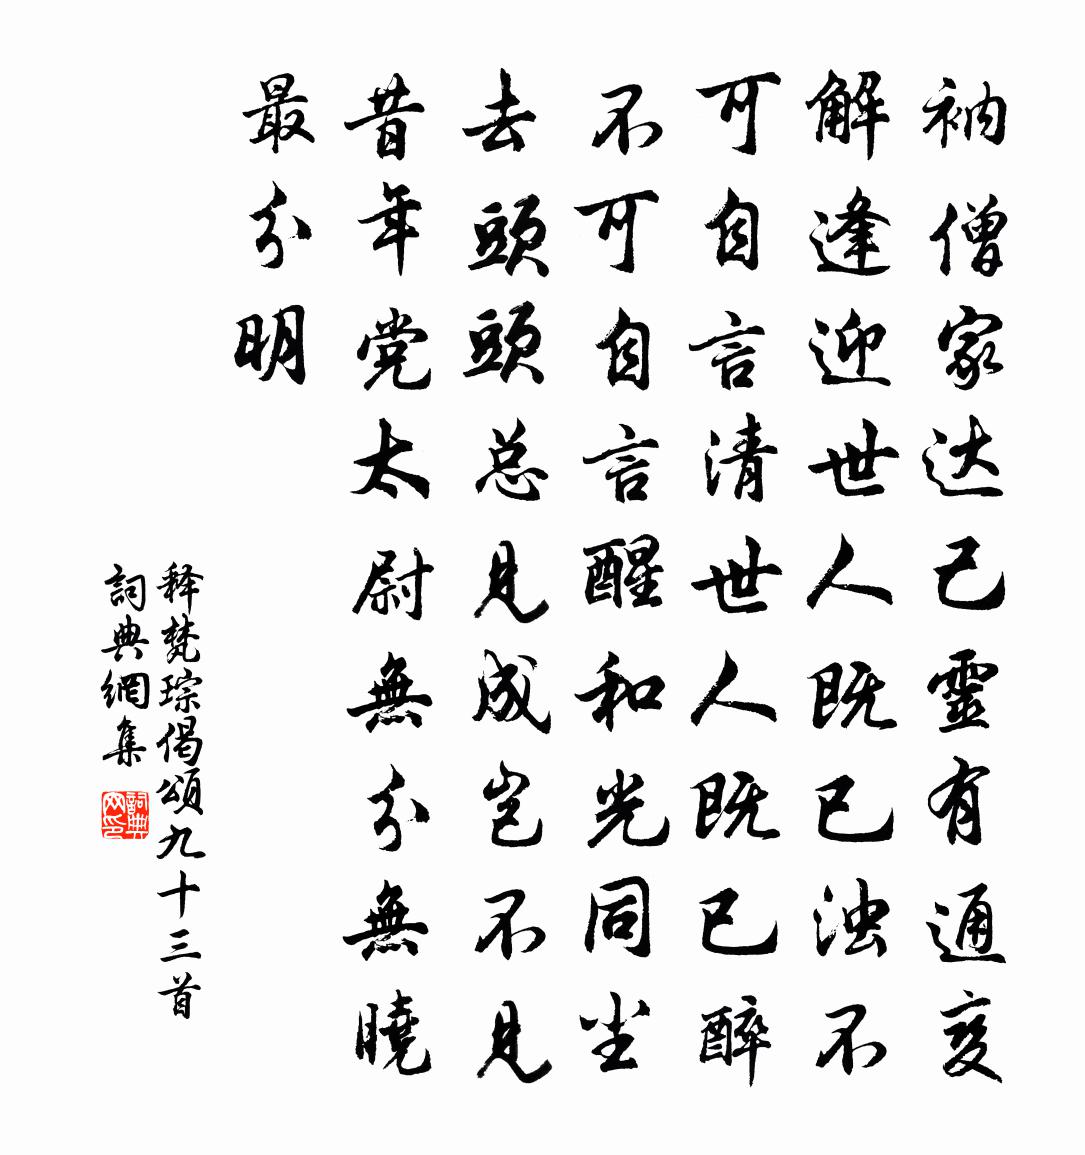 衲僧家达己靈有通变
解逢迎世人既已浊不
可自言清世人既已醉
不可自言醒和光同尘
去頭頭总见成岂不见
昔年党太尉無分無曉
最分明
释梵琮偈頌九十三首
詞典網集
詞典网印